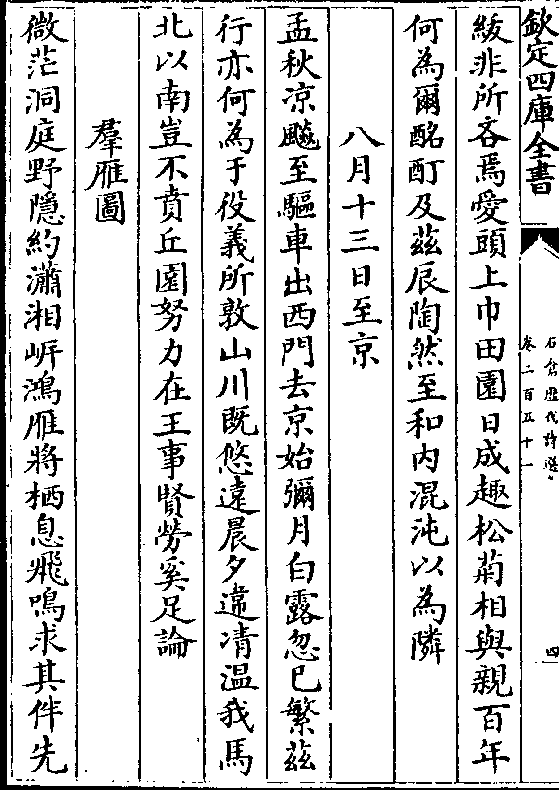 欽定四庫全書
石倉歷代詩選
卷二百五十一
四
紱非所吝焉愛頭上巾田園日成趣松菊相與親百年
何為爾酩酊及茲辰陶然至和内混沌以為隣
八月十三日至京
孟秋凉飈至驅車出西門去京始彌月白露忽已繁茲
行亦何為于役義所敦山川既悠遠晨夕違凊温我馬
北以南豈不賁丘園努力在王事賢勞奚足論
羣雁圖
微茫洞庭野隱約瀟湘㟁鴻雁將栖息飛鳴求其伴先